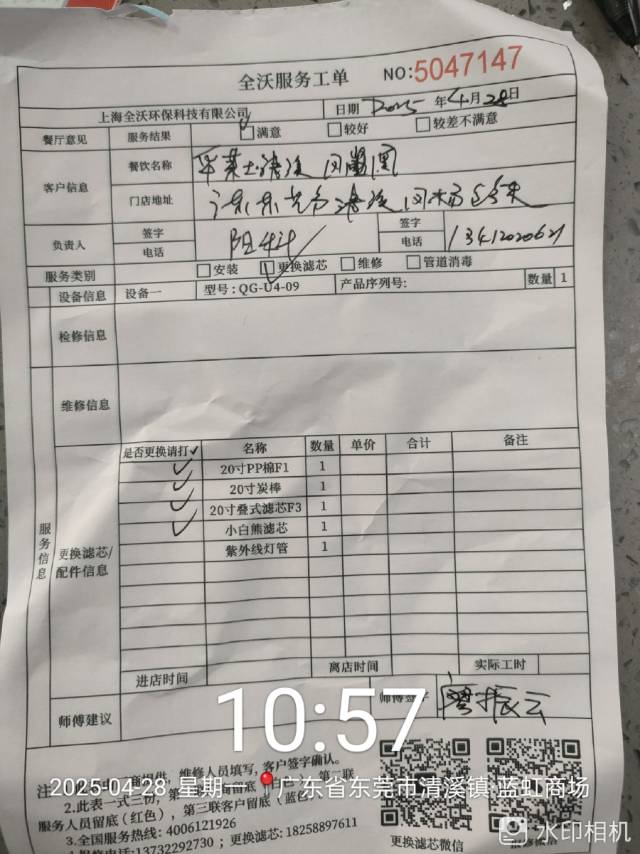 全沃服务工单 NO:5047147
上海全沃环保科技有限公司 日期 2025 年 4 月 28 日
餐厅意见 服务结果 满意 较好 较差不满意
客户信息 餐饮名称 华莱士清溪
门店地址 广东东莞市清溪
负责人 签字 签字
电话 电话 13412020621
服务类别 安装 更换滤芯 维修 管道消毒
设备信息 设备一 型号:QG-U4-09 产品序列号: 数量 1
检修信息
维修信息
服务信息
更换滤芯/配件信息
是否更换请打✓ 名称 数量 单价 合计 备注
✓ 20寸PP棉F1 1
✓ 20寸炭棒 1
✓ 20寸叠式滤芯F3 1
✓ 小白熊滤芯 1
紫外线灯管 1
进店时间 离店时间 实际工时
师傅建议 师傅签字 廖振云
10:57
2025-04-28 星期一 广东省东莞市清溪镇·蓝虹商场
维修人员填写,客户签字确认。
2.此表一式三份,第
服务人员留底(红色),第三联客户留底(蓝色
3.全国服务热线: 4006121926
电话:13732292730 ; 更换滤芯: 18258897611
更换滤芯微信
水印相机